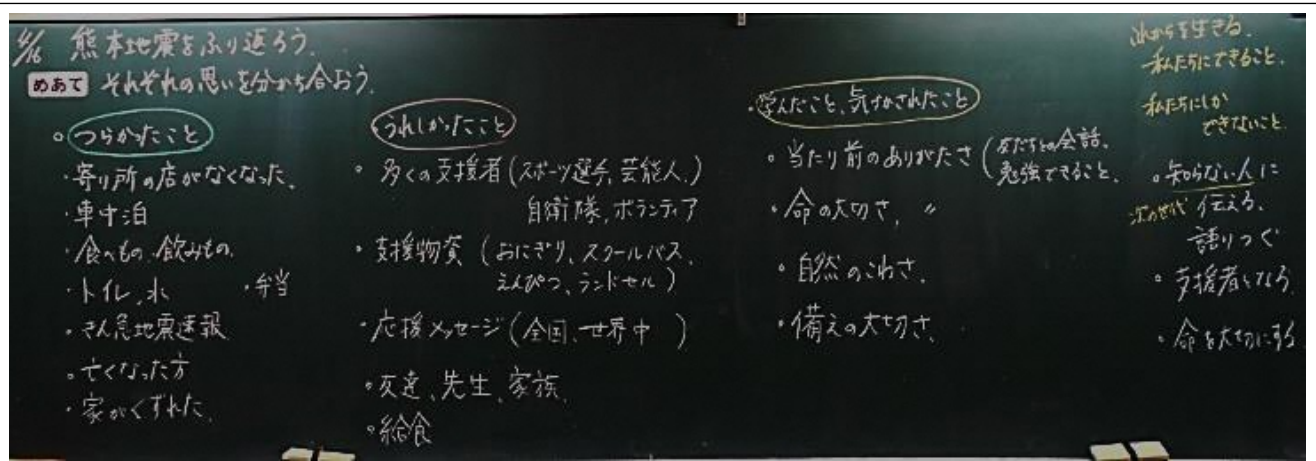 4/16 熊本地震をふり返ろう。
めあて それぞれの思いを分かち合おう。
。つらかったこと
・寄り所の店がなくなった。
・車中泊
・食べもの、飲みもの。
・トイレ、水 ・弁当
・きん急地震速報
。亡くなった方
・家がくずれた。
うれしかったこと
。多くの支援者(スポーツ選手、芸能人。)
自衛隊、ボランティア
。支援物資(おにぎり、スクールバス、
えんぴつ、ランドセル)
・応援メッセージ(全国、世界中)
。友達、先生、家族。
。給食
・学んだこと、気づかされたこと
。当たり前のありがたさ(友だちとの会話、
勉強できること。
・命の大切さ。〃
。自然のこわさ。
・備えの大切さ。
これからを生きる。
私たちにできること。
私たちにしか
できないこと。
。知らない人に
次の世代 伝える。
語りつぐ
。支援者となろう
。命を大切にする